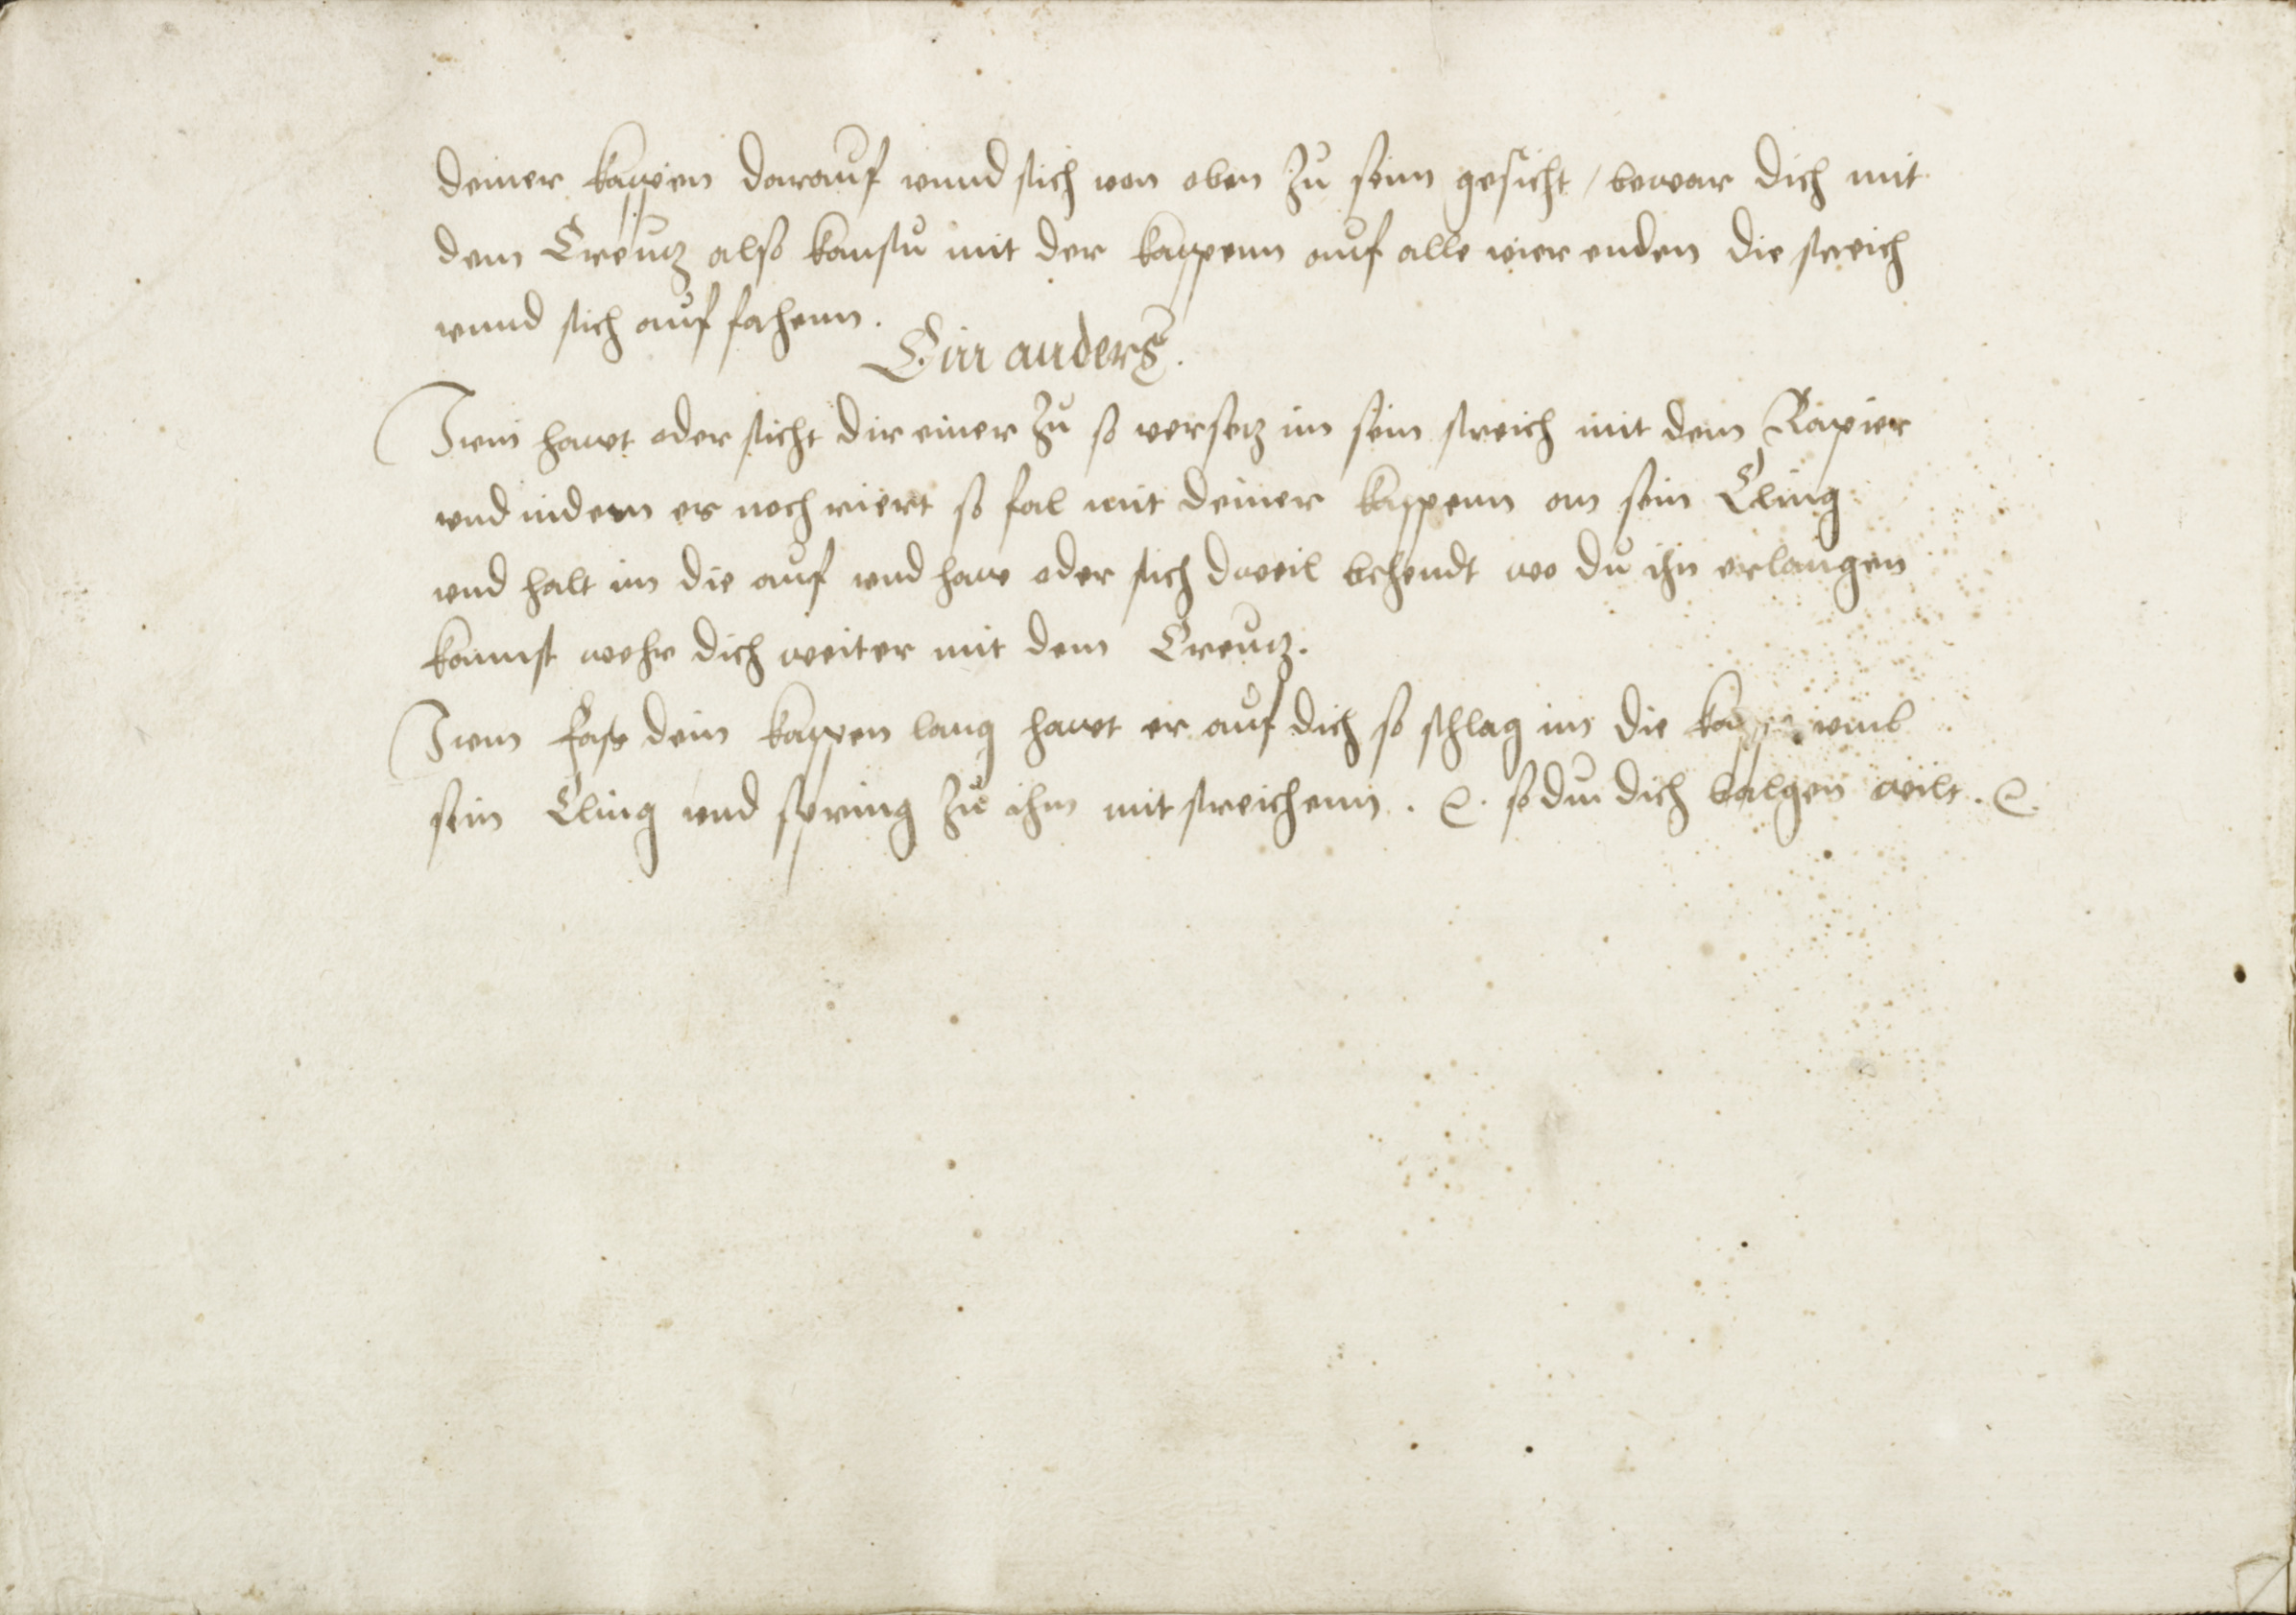 deiner kappen darauf vnnd stich von oben zu seim gesicht / bewar dich mit
dem Creutz also kanstu mit der kappenn auf alle vier enden die streich
vnnd stich auf fahenn.
Ein anders.
Item hawt oder sticht dir einer zu so versetz im sein streich mit dem Rapier
vnd indem er noch riert so fal mit deiner kappenn an sein Cling
vnd halt im die auf vnd haw oder stich dweil behendt wo du ihn erlangen
kannst wehr dich weiter mit dem Creutz.
Item fass dein kappen lang hawt er auf dich so schlag im die kappe vmb
sein Cling vnd spring zu ihm mit streichenn . &. so du dich balgen wilt . &.